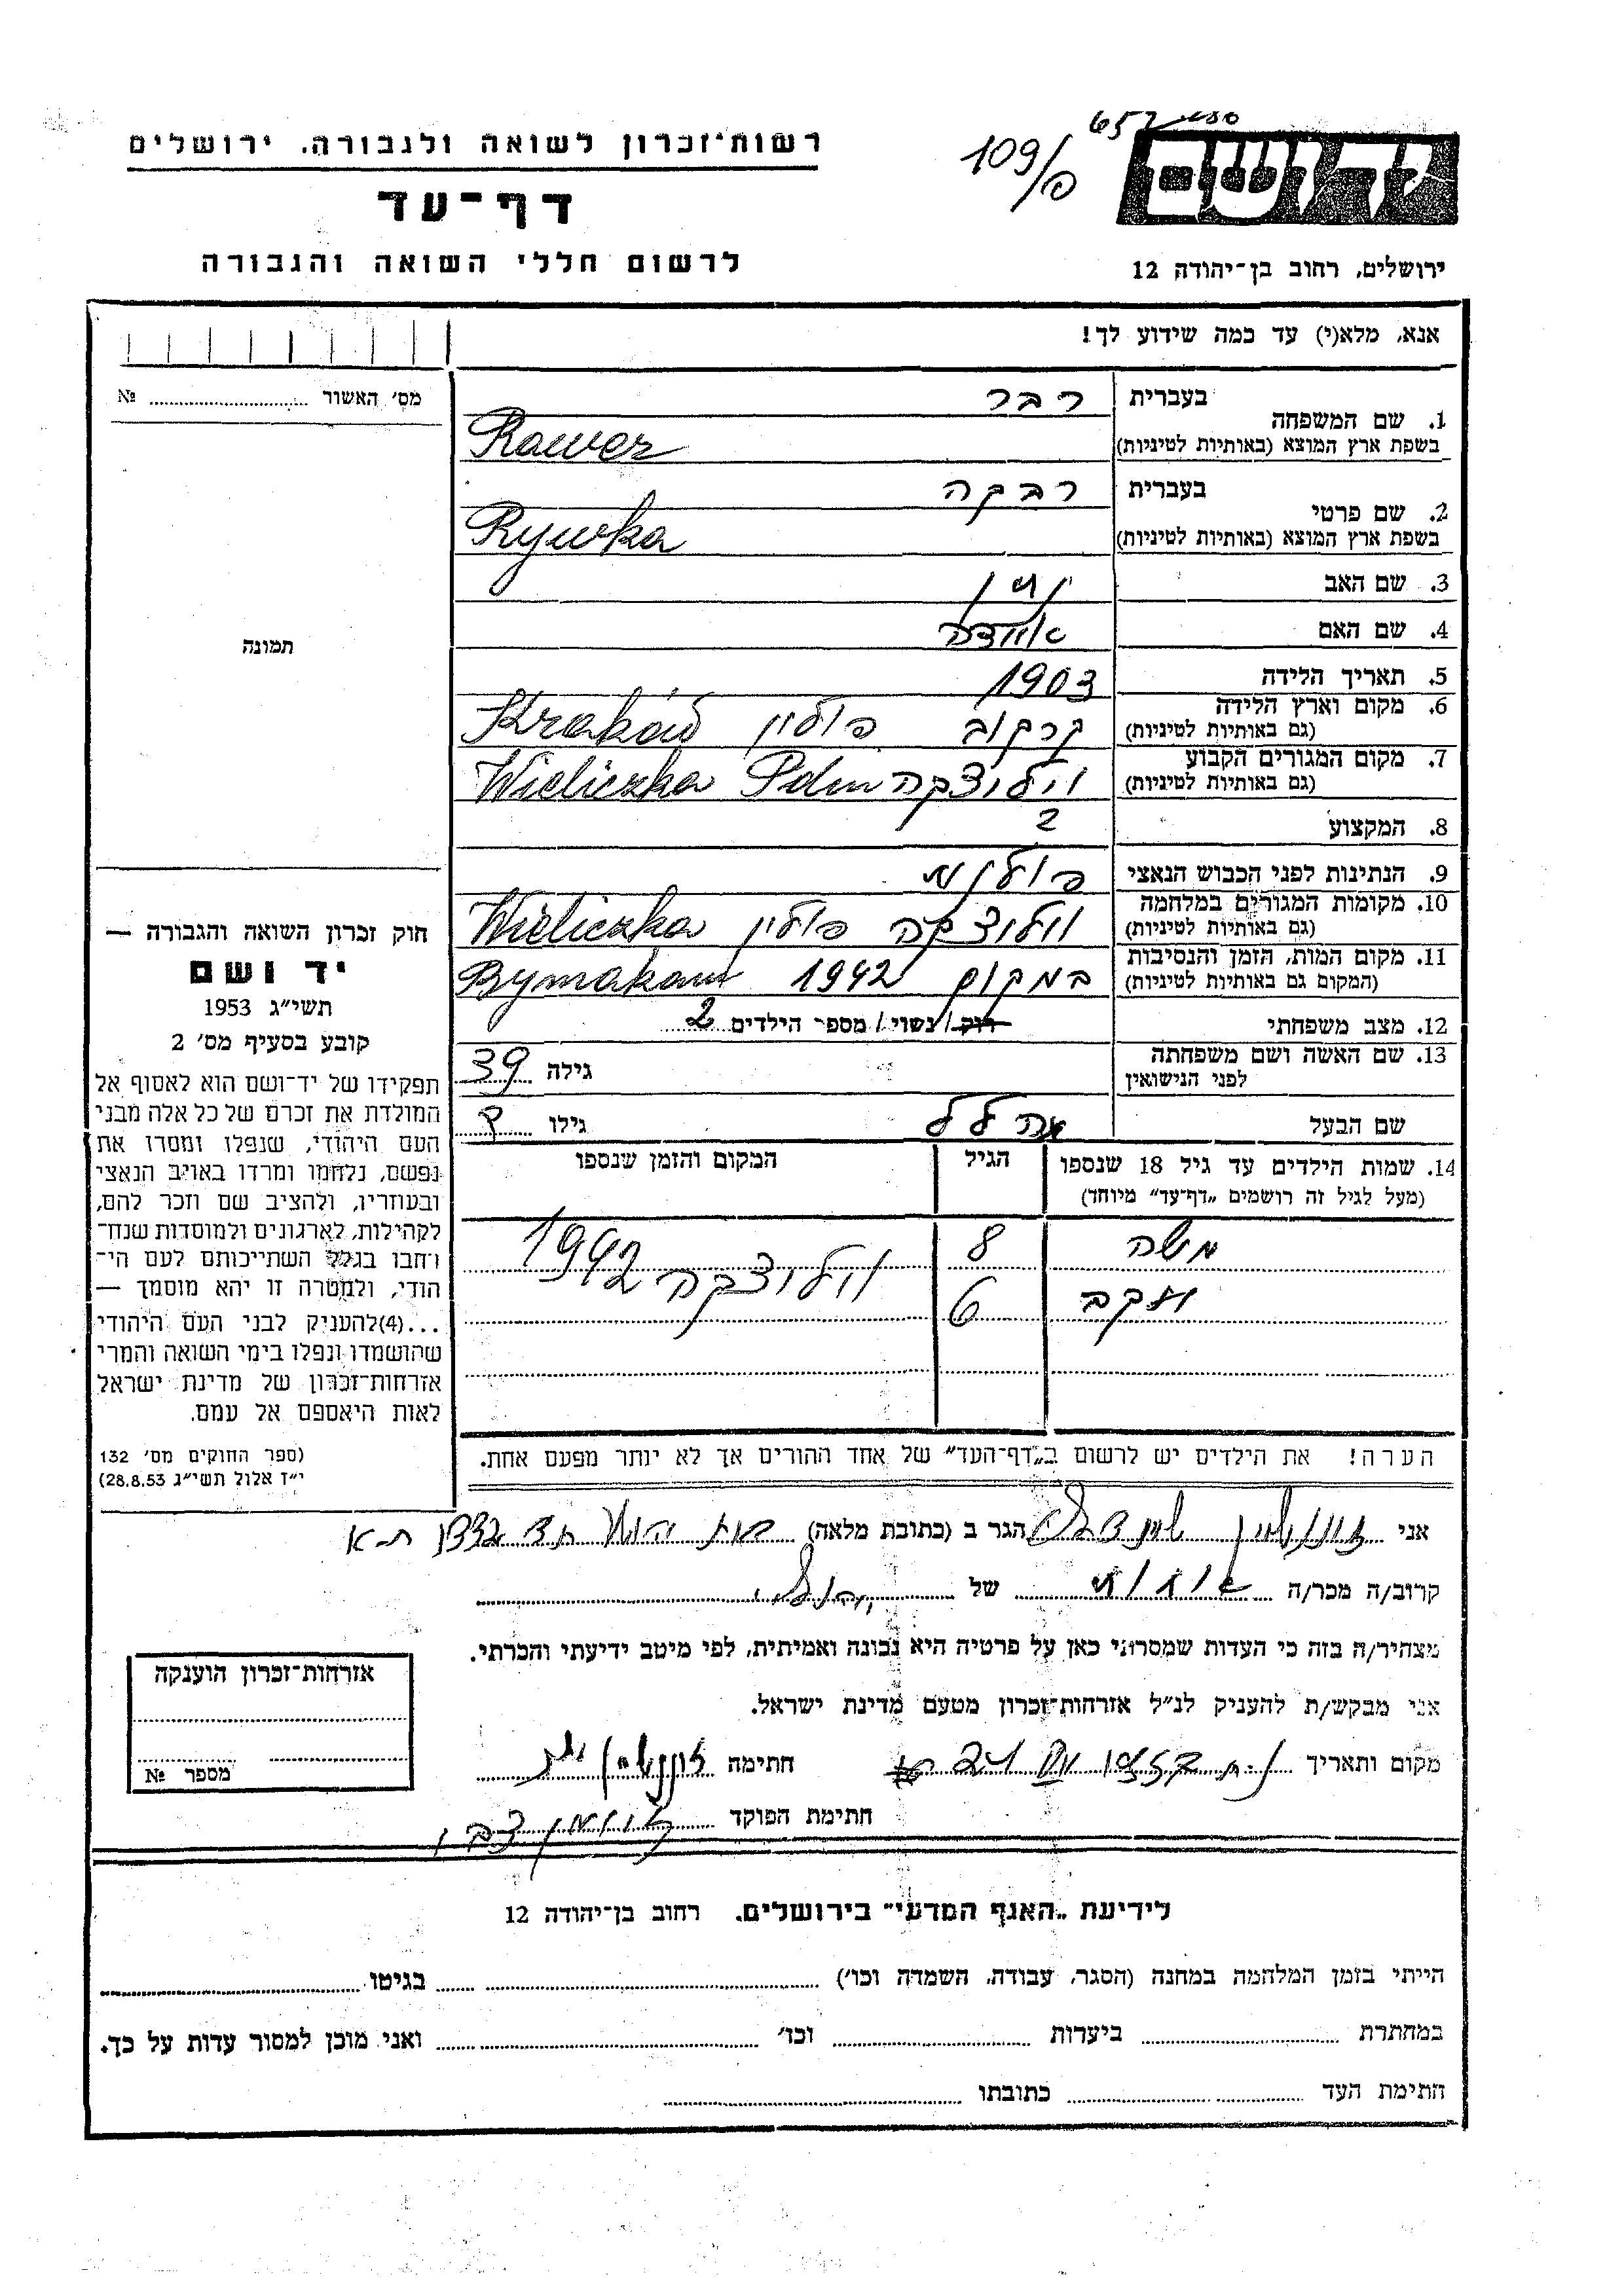 רשות־זכרון לשואה ולגבורה, ירושלים
דף־עד
לרשום חללי השואה והגבורה
109/פ
יד ושם
ירושלים, רחוב בן־יהודה 12
אנא, מלא(י) עד כמה שידוע לך!
מס׳ האשור № 
תמונה
בעברית רבר
1. שם המשפחה
בשפת ארץ המוצא (באותיות לטיניות) Rawer
בעברית רבקה
2. שם פרטי
בשפת ארץ המוצא (באותיות לטיניות) Rywka
3. שם האב
4. שם האם
5. תאריך הלידה 1903
6. מקום וארץ הלידה
(גם באותיות לטיניות) קרקוב פולין Kraków
7. מקום המגורים הקבוע
(גם באותיות לטיניות) וילוצקה Wieliczka
8. המקצוע
9. הנתינות לפני הכבוש הנאצי
10. מקומות המגורים במלחמה
(גם באותיות לטיניות) וולוצקה פולין Wieliczka
11. מקום המות, הזמן והנסיבות
(המקום גם באותיות לטיניות) במקום 1942
12. מצב משפחתי רוק / נשוי / מספר הילדים 2
13. שם האשה ושם משפחתה
לפני הנישואין גילה 39
שם הבעל גילו ?
14. שמות הילדים עד גיל 18 שנספו הגיל המקום והזמן שנספו
(מעל לגיל זה רושמים „דף־עד״ מיוחד)
משה 8 וולוצקה 1942
יעקב 6
הערה! את הילדים יש לרשום ב„דף־העד״ של אחד ההורים אך לא יותר מפעם אחת.
חוק זכרון השואה והגבורה —
יד ושם
תשי״ג 1953
קובע בסעיף מס׳ 2
תפקידו של יד־ושם הוא לאסוף אל
המולדת את זכרם של כל אלה מבני
העם היהודי, שנפלו ומסרו את
נפשם, נלחמו ומרדו באויב הנאצי
ובעוזריו, ולהציב שם וזכר להם,
לקהילות, לארגונים ולמוסדות שנח־
רחבו בגלל השתייכותם לעם הי־
הודי, ולמטרה זו יהא מוסמך —
...(4) להעניק לבני העם היהודי
שהושמדו ונפלו בימי השואה והמרי
אזרחות־זכרון של מדינת ישראל
לאות היאספם אל עמם.
(ספר החוקים מס׳ 132
י״ז אלול תשי״ג 28.8.53)
אני הגר ב (כתובת מלאה) ת-א
קרוב/ה מכר/ה של
מצהיר/ה בזה כי העדות שמסרתי כאן על פרטיה היא נכונה ואמיתית, לפי מיטב ידיעתי והכרתי.
אני מבקש/ת להעניק לנ״ל אזרחות־זכרון מטעם מדינת ישראל.
מקום ותאריך חתימה
חתימת הפוקד
אזרחות־זכרון הוענקה
מספר №
לידיעת „האגף המדעי״ בירושלים, רחוב בן־יהודה 12
הייתי בזמן המלחמה במחנה (הסגר, עבודה, השמדה וכו׳) בגיטו
במחתרת ביערות וכו׳ ואני מוכן למסור עדות על כך.
חתימת העד כתובתו